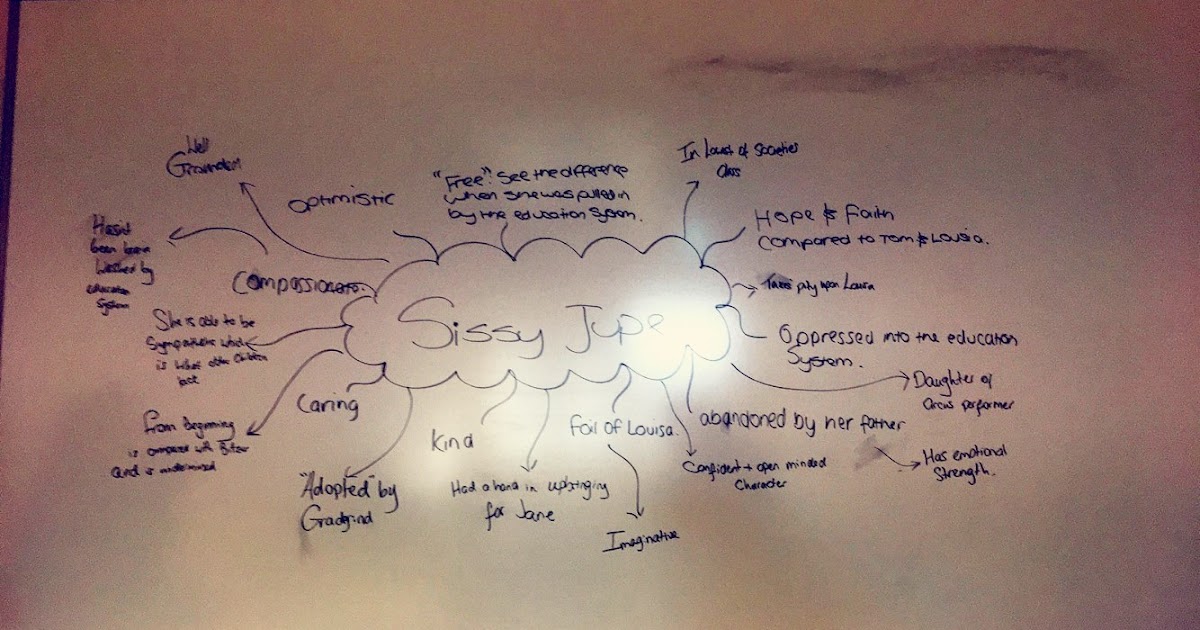 Well
optimistic
"Free": See the difference
when she was pulled in
by the education System.
In Lowest of Societies
Class
Hope & Faith
compared to Tom & Lousia.
Hasnt
been brain
washed by
education
System
Compassionate.
Takes pity upon Louisa
Sissy Jupe
She is able to be
Sympathetic which
is what other children
lack
Oppressed into the education
System.
Daughter of
Circus performer
Caring
From beginning
is compared with Bitzer
and is undermined
Kind
Foil of Louisa.
abandoned by her father
"Adopted" by
Gradgrind
Had a hand in upbringing
for Jane
Confident + open minded
Character
Has emotional
Strength.
Imaginative